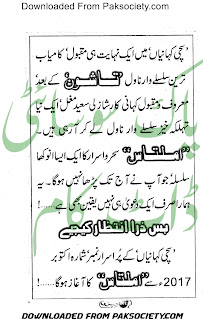 Downloaded From Paksociety.com
سچی کہانیاں میں ایک نہایت ہی مقبول کامیاب
ترین سلسلے وار ناول "تاشون" کے بعد
معروف و مقبول کہانی کار شازلی سعید مغل ایک نیا
تہلکہ خیز سلسلے وار ناول لے کر آرہی ہیں۔
"املتاس" سحر و اسرار کا ایک ایسا انوکھا
سلسلہ جو آپ نے آج تک پڑھا نہیں ہوگا۔ یہ
ہمارا صرف ایک دعویٰ ہی نہیں یقین بھی ہے۔
بس ذرا انتظار کیجیے
'سچی کہانیاں' کے پُر اسرار نمبر شمارہ اکتوبر
2017ء سے "املتاس" کا آغاز ہوگا......!
DOWNLOADED FROM PAKSOCIETY.COM